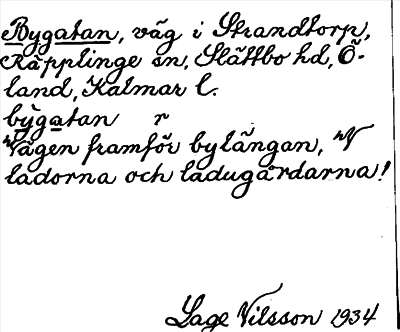 Bygatan, väg i Strandtorp,
Räpplinge sn, Slättbo hd, Ö-
land, Kalmar l.
bỳgatan r
Vägen framför bylängan, W
ladorna och ladugårdarna!
Lage Nilsson 1934